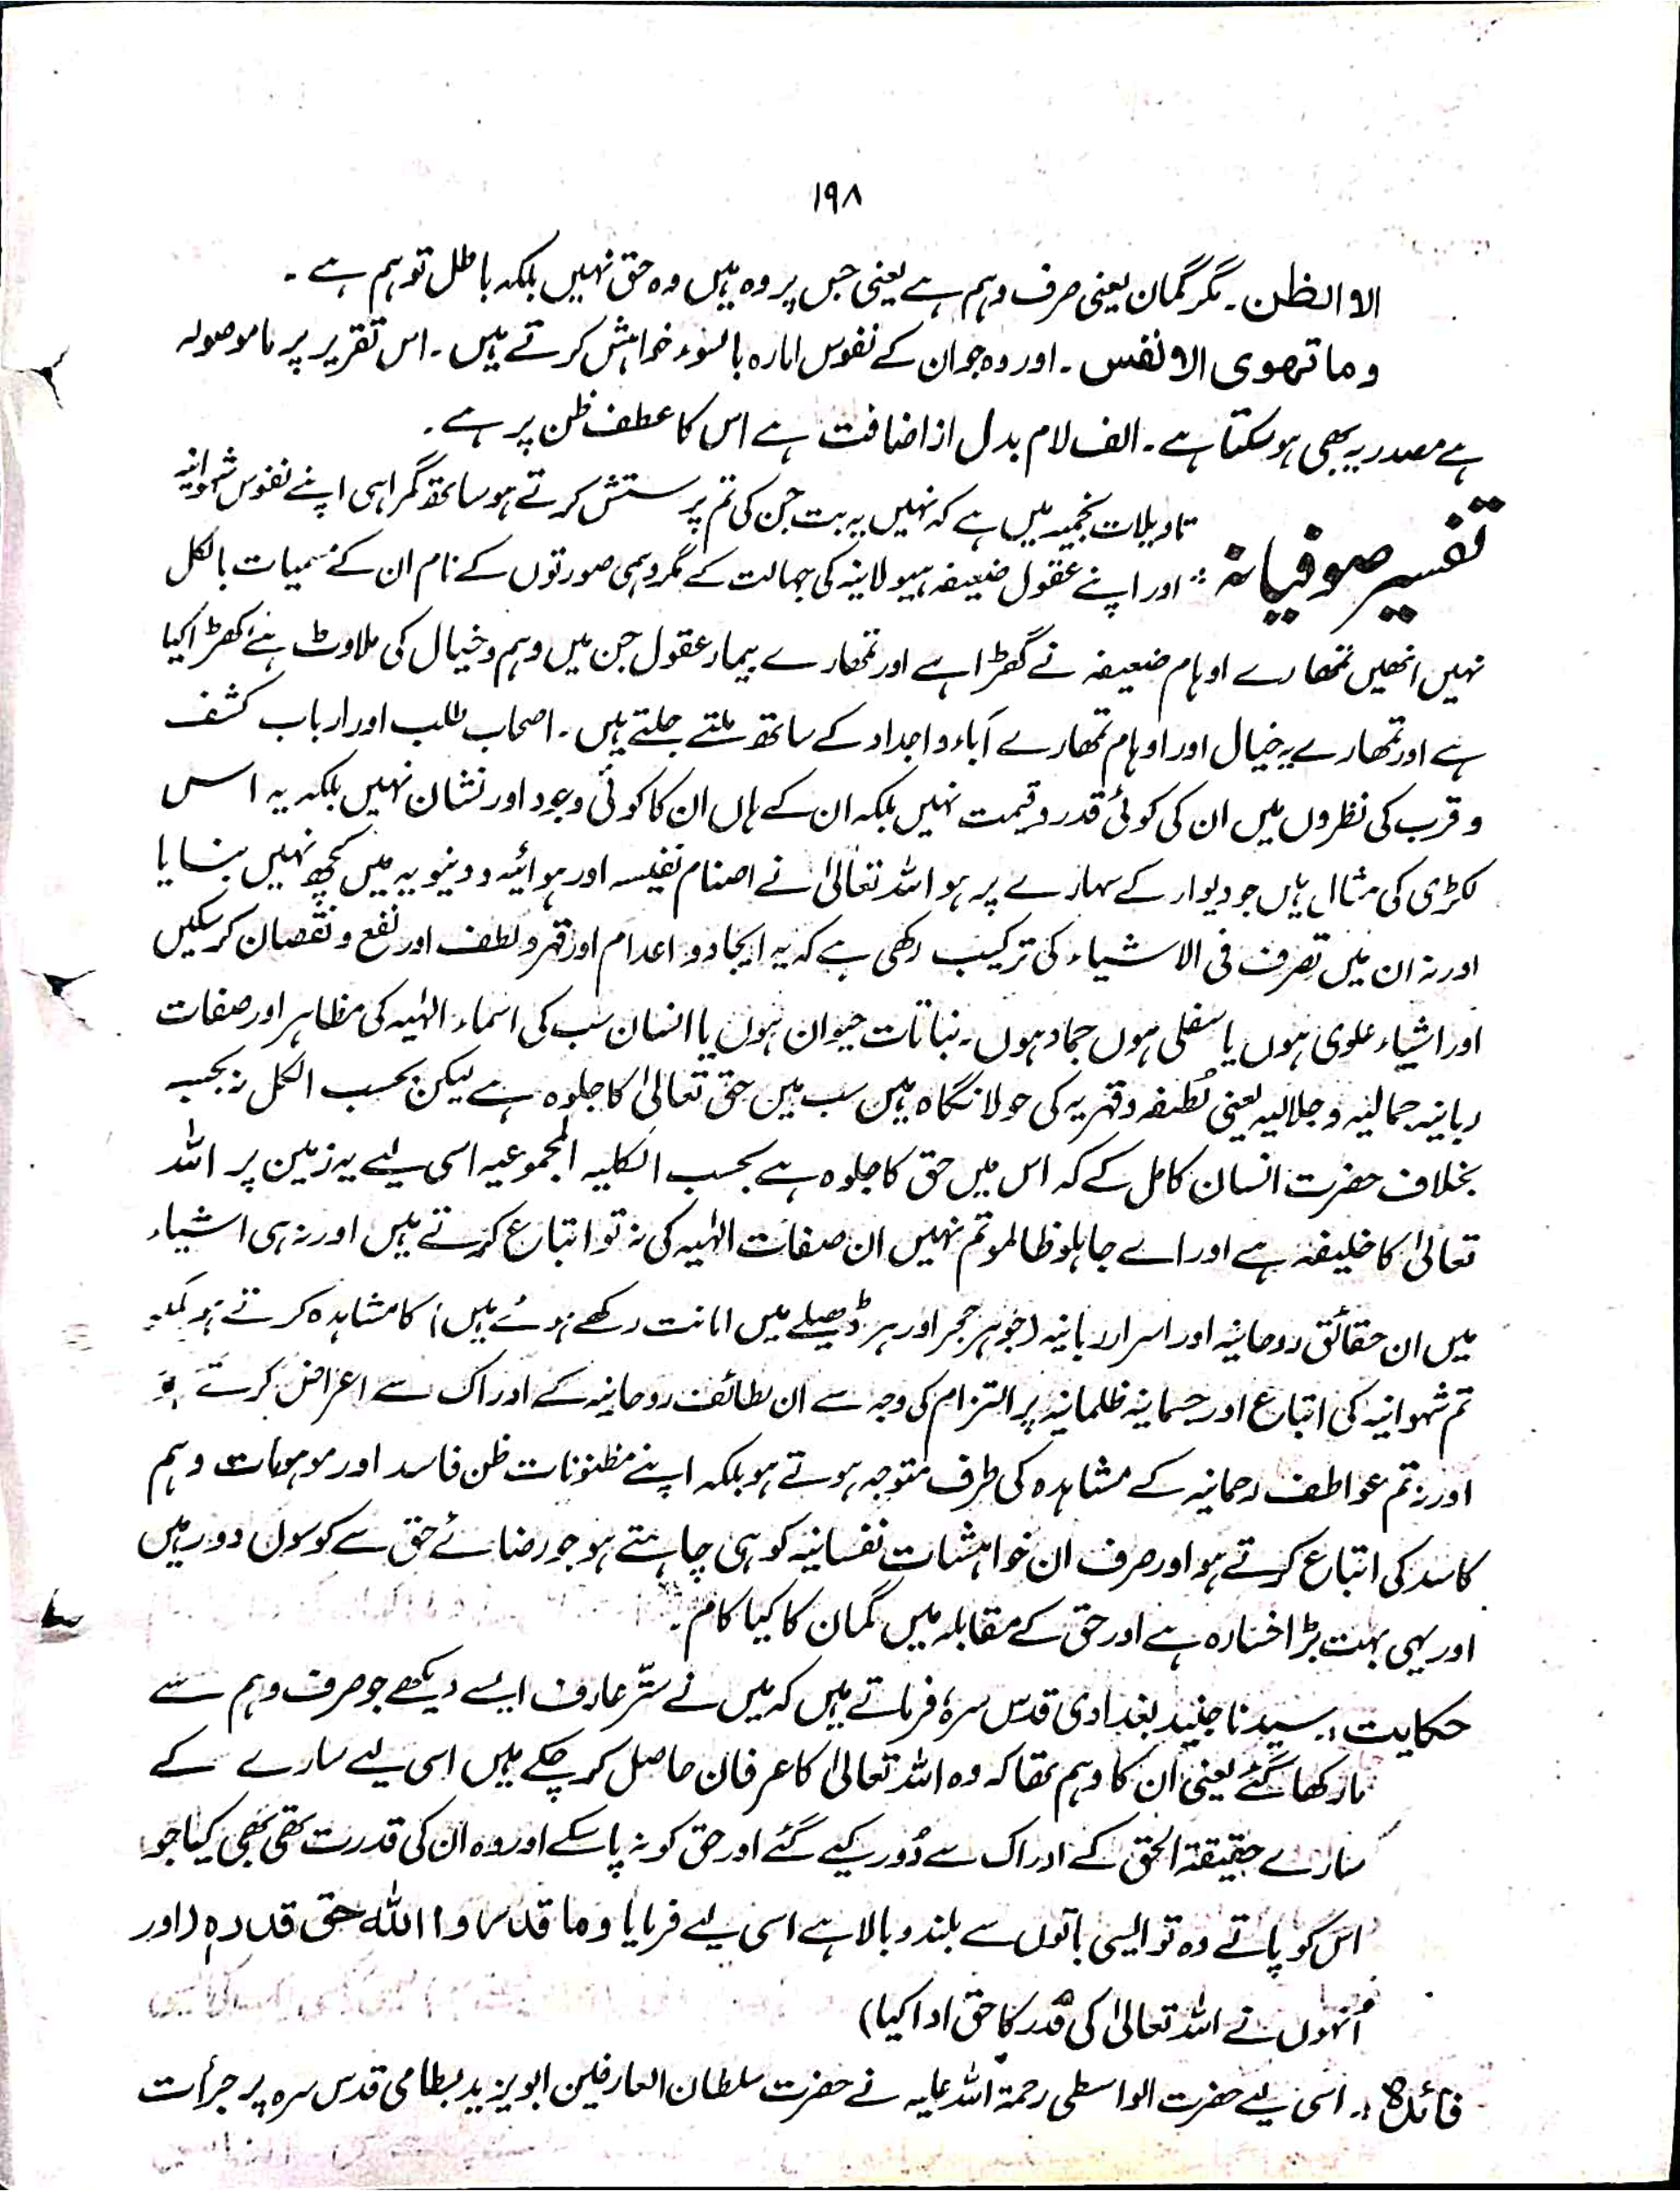 ۱۹۸
الا الظن۔ مگر گمان یعنی صرف وہم ہے یعنی جس پر وہ ہیں وہ حق نہیں بلکہ باطل توہم ہے۔
وما تھوی الانفس۔ اور وہ جو ان کے نفوس امارہ بالسوء خواہش کرتے ہیں۔ اس تقریر پر ما موصولہ
ہے مصدریہ بھی ہو سکتا ہے۔ الف لام بدل از اضافت ہے اس کا عطف ظن پر ہے۔
تفسیر صوفیانہ: تاویلات نجمیہ میں ہے کہ نہیں یہ بت جن کی تم پرستش کرتے ہو ساتھ گمراہی اپنے نفوس شہوانیہ
اور اپنے عقول ضعیفہ ہیولانیہ کی جہالت کے مگر وہمی صورتوں کے نام ان کے مسمیات بالکل
نہیں انھیں تمھارے اوہام ضعیفہ نے گھڑا ہے اور تمھارے بیمار عقول جن میں وہم و خیال کی ملاوٹ ہے نے کھڑا کیا
ہے اور تمھارے یہ خیال اور اوہام تمھارے آباء و اجداد کے ساتھ ملتے جلتے ہیں۔ اصحاب طلب اور ارباب کشف
و قرب کی نظروں میں ان کی کوئی قدر و قیمت نہیں بلکہ ان کے ہاں ان کا کوئی وجود اور نشان نہیں بلکہ یہ اس
لکڑی کی مثال ہیں جو دیوار کے سہارے پر ہو اللہ تعالیٰ نے اصنام نفیسہ اور ہوائیہ و دینویہ میں کچھ نہیں بنایا
اور نہ ان میں تصرف فی الاشیاء کی ترکیب رکھی ہے کہ یہ ایجاد و اعدام اور قہر و لطف اور نفع و نقصان کر سکیں
اور اشیاء علوی ہوں یا سفلی ہوں جماد ہوں۔ نباتات حیوان ہوں یا انسان سب کی اسماء الٰہیہ کی مظاہر اور صفات
ربانیہ جمالیہ و جلالیہ یعنی لطیفہ و قہریہ کی جولانگاہ ہیں سب میں حق تعالیٰ کا جلوہ ہے لیکن بحسب الکل نہ بحسب
بخلاف حضرت انسان کامل کے کہ اس میں حق کا جلوہ ہے بحسب الکلیہ المجموعیہ اسی لیے یہ زمین پر اللہ
تعالیٰ کا خلیفہ ہے اور اے جاہلو ظالمو تم نہیں ان صفات الٰہیہ کی نہ تو اتباع کرتے ہیں اور نہ ہی اشیاء
میں ان حقائق روحانیہ اور اسرار ربانیہ (جو ہر حجر اور ہر ڈھیلے میں امانت رکھے ہوئے ہیں) کا مشاہدہ کرتے ہو بلکہ
تم شہوانیہ کی اتباع اور جسمانیہ ظلمانیہ پر التزام کی وجہ سے ان لطائف روحانیہ کے ادراک سے اعراض کرتے ہو
اور نہ تم عواطف رحمانیہ کے مشاہدہ کی طرف متوجہ ہوتے ہو بلکہ اپنے مظنونات ظن فاسد اور موہومات وہم
کاسد کی اتباع کرتے ہو اور صرف ان خواہشات نفسانیہ کو ہی چاہتے ہو جو رضائے حق سے کوسوں دور ہیں
اور یہی بہت بڑا خسارہ ہے اور حق کے مقابلہ میں گمان کا کیا کام۔
حکایت: سیدنا جنید بغدادی قدس سرہ فرماتے ہیں کہ میں نے ستر عارف ایسے دیکھے جو صرف وہم سے
مار کھا گئے یعنی ان کا وہم تھا کہ وہ اللہ تعالیٰ کا عرفان حاصل کر چکے ہیں اسی لیے سارے کے
سارے حقیقۃ الحق کے ادراک سے دُور کیے گئے اور حق کو نہ پا سکے اور وہ ان کی قدرت تھی بھی کیا جو
اس کو پاتے وہ تو ایسی باتوں سے بلند و بالا ہے اسی لیے فرمایا وما قدروا اللہ حق قدرہ (اور
اُنہوں نے اللہ تعالیٰ کی قدر کا حق ادا کیا)
فائدہ:۔ اسی لیے حضرت الواسطی رحمۃ اللہ علیہ نے حضرت سلطان العارفین ابو یزید بسطامی قدس سرہ پر جرأت